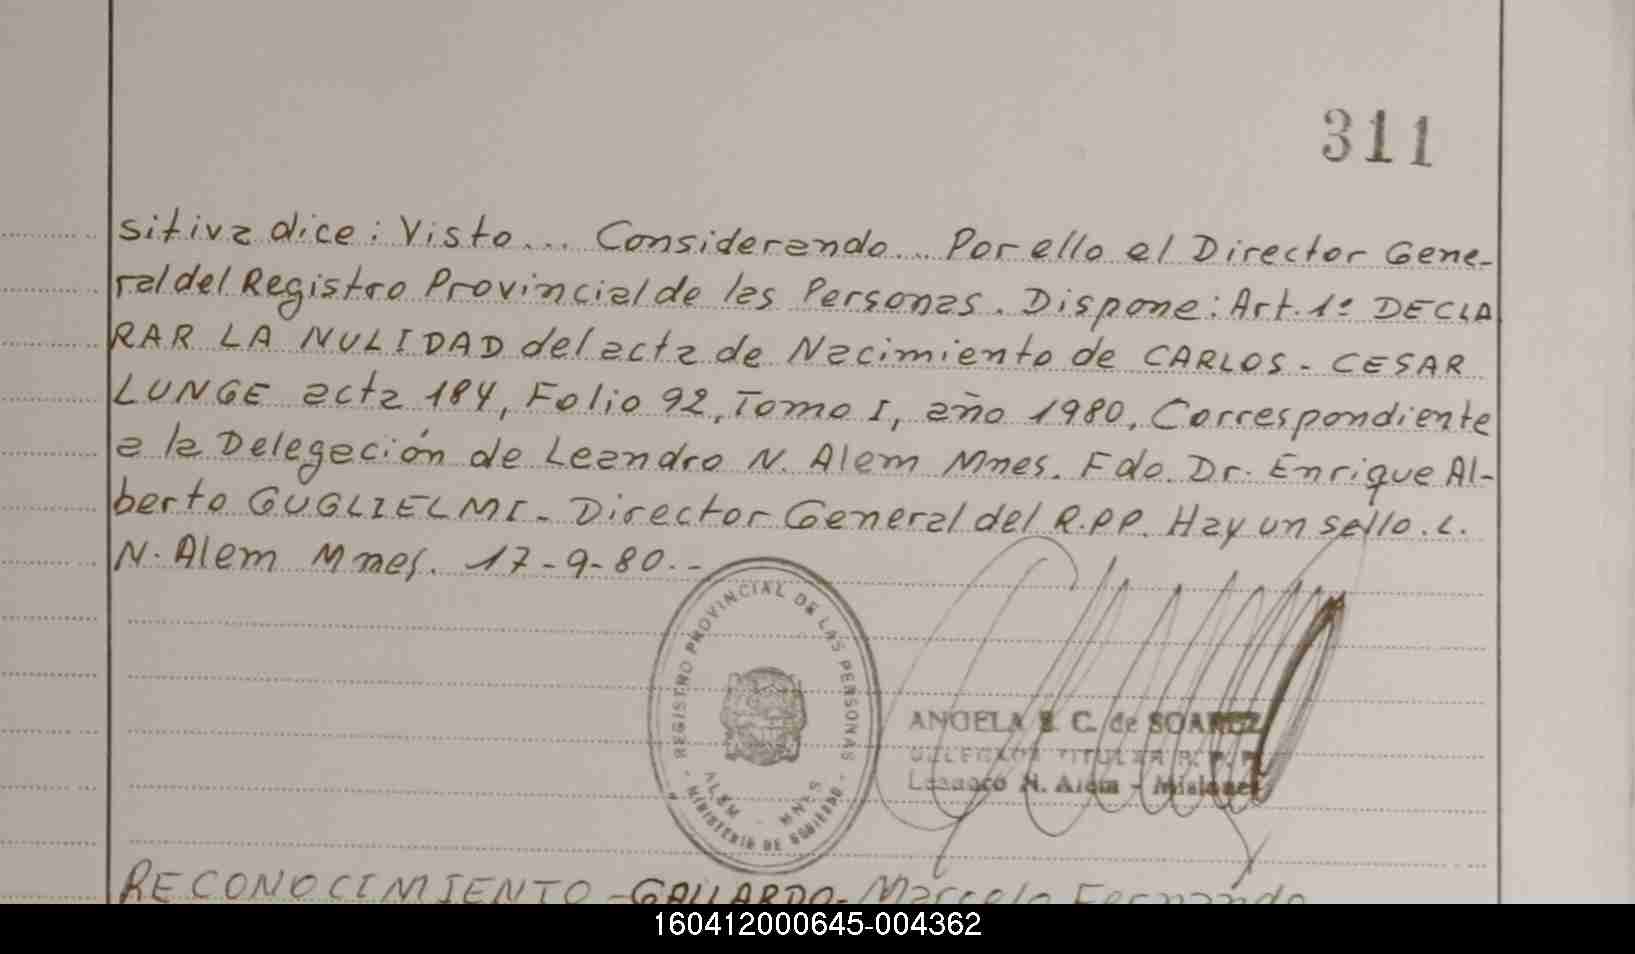 311
sitiva dice: Visto... Considerando... Por ello el Director Gene-
ral del Registro Provincial de las Personas. Dispone: Art. 1º DECLA
RAR LA NULIDAD del acta de Nacimiento de CARLOS - CESAR
LUNGE acta 184, Folio 92, Tomo I, año 1980, Correspondiente
a la Delegación de Leandro N. Alem Mnes. Fdo. Dr. Enrique Al-
berto GUGLIELMI - Director General del R.P.P. Hay un sello. L.
N. Alem Mnes. 17-9-80.-
REGISTRO PROVINCIAL DE LAS PERSONAS
ALEM - MNES
- MINISTERIO DE GOBIERNO -
ANGELA E. C. de SOAREZ
TITULAR R. P. P.
Leandro N. Alem - Misiones
RECONOCIMIENTO - GALLARDO - Marcelo Fernando
160412000645-004362